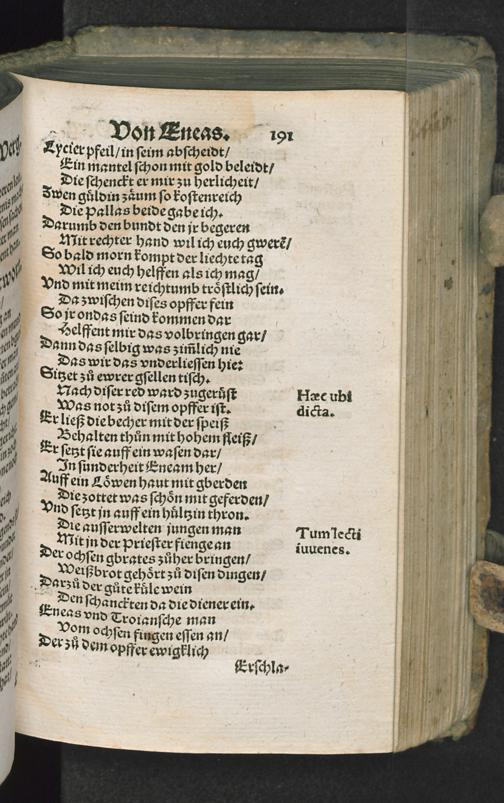 Von Eneas. 191
Lycier pfeil/ in seim abscheidt/
Ein mantel schon mit gold beleidt/
Die schenckt er mir zu herlicheit/
Zwen güldin zäum so kostenreich
Die Pallas beide gabe ich.
Darumb den bundt den jr begeren
Mit rechter hand wil ich euch gwerē/
So bald morn kompt der liechte tag
Wil ich euch helffen als ich mag/
Vnd mit meim reichtumb tröstlich sein.
Da zwischen dises opffer fein
So jr on das seind kommen dar
Helffent mir das volbringen gar/
Dann das selbig was zim̄lich nie
Das wir das vnderliessen hie:
Sitzet zů ewrer gsellen tisch.
Nach diser red ward zugerüst
Hæc ubi
Was not zů disem opffer ist.
dicta.
Er ließ die becher mit der speiß
Behalten thůn mit hohem fleiß/
Er setzt sie auff ein wasen dar/
In sunderheit Eneam her/
Auff ein Löwen haut mit gberden
Die zottet was schön mit geferden/
Vnd setzt jn auff ein hültzin thron.
Die ausserwelten jungen man
Tum lecti
Mit jn der Priester fienge an
iuuenes.
Der ochsen gbrates zůher bringen/
Weißbrot gehört zů disen dingen/
Darzů der gůte küle wein
Den schanckten da die diener ein.
Eneas vnd Troiansche man
Vom ochsen fingen essen an/
Der zů dem opffer ewigklich
Erschla-